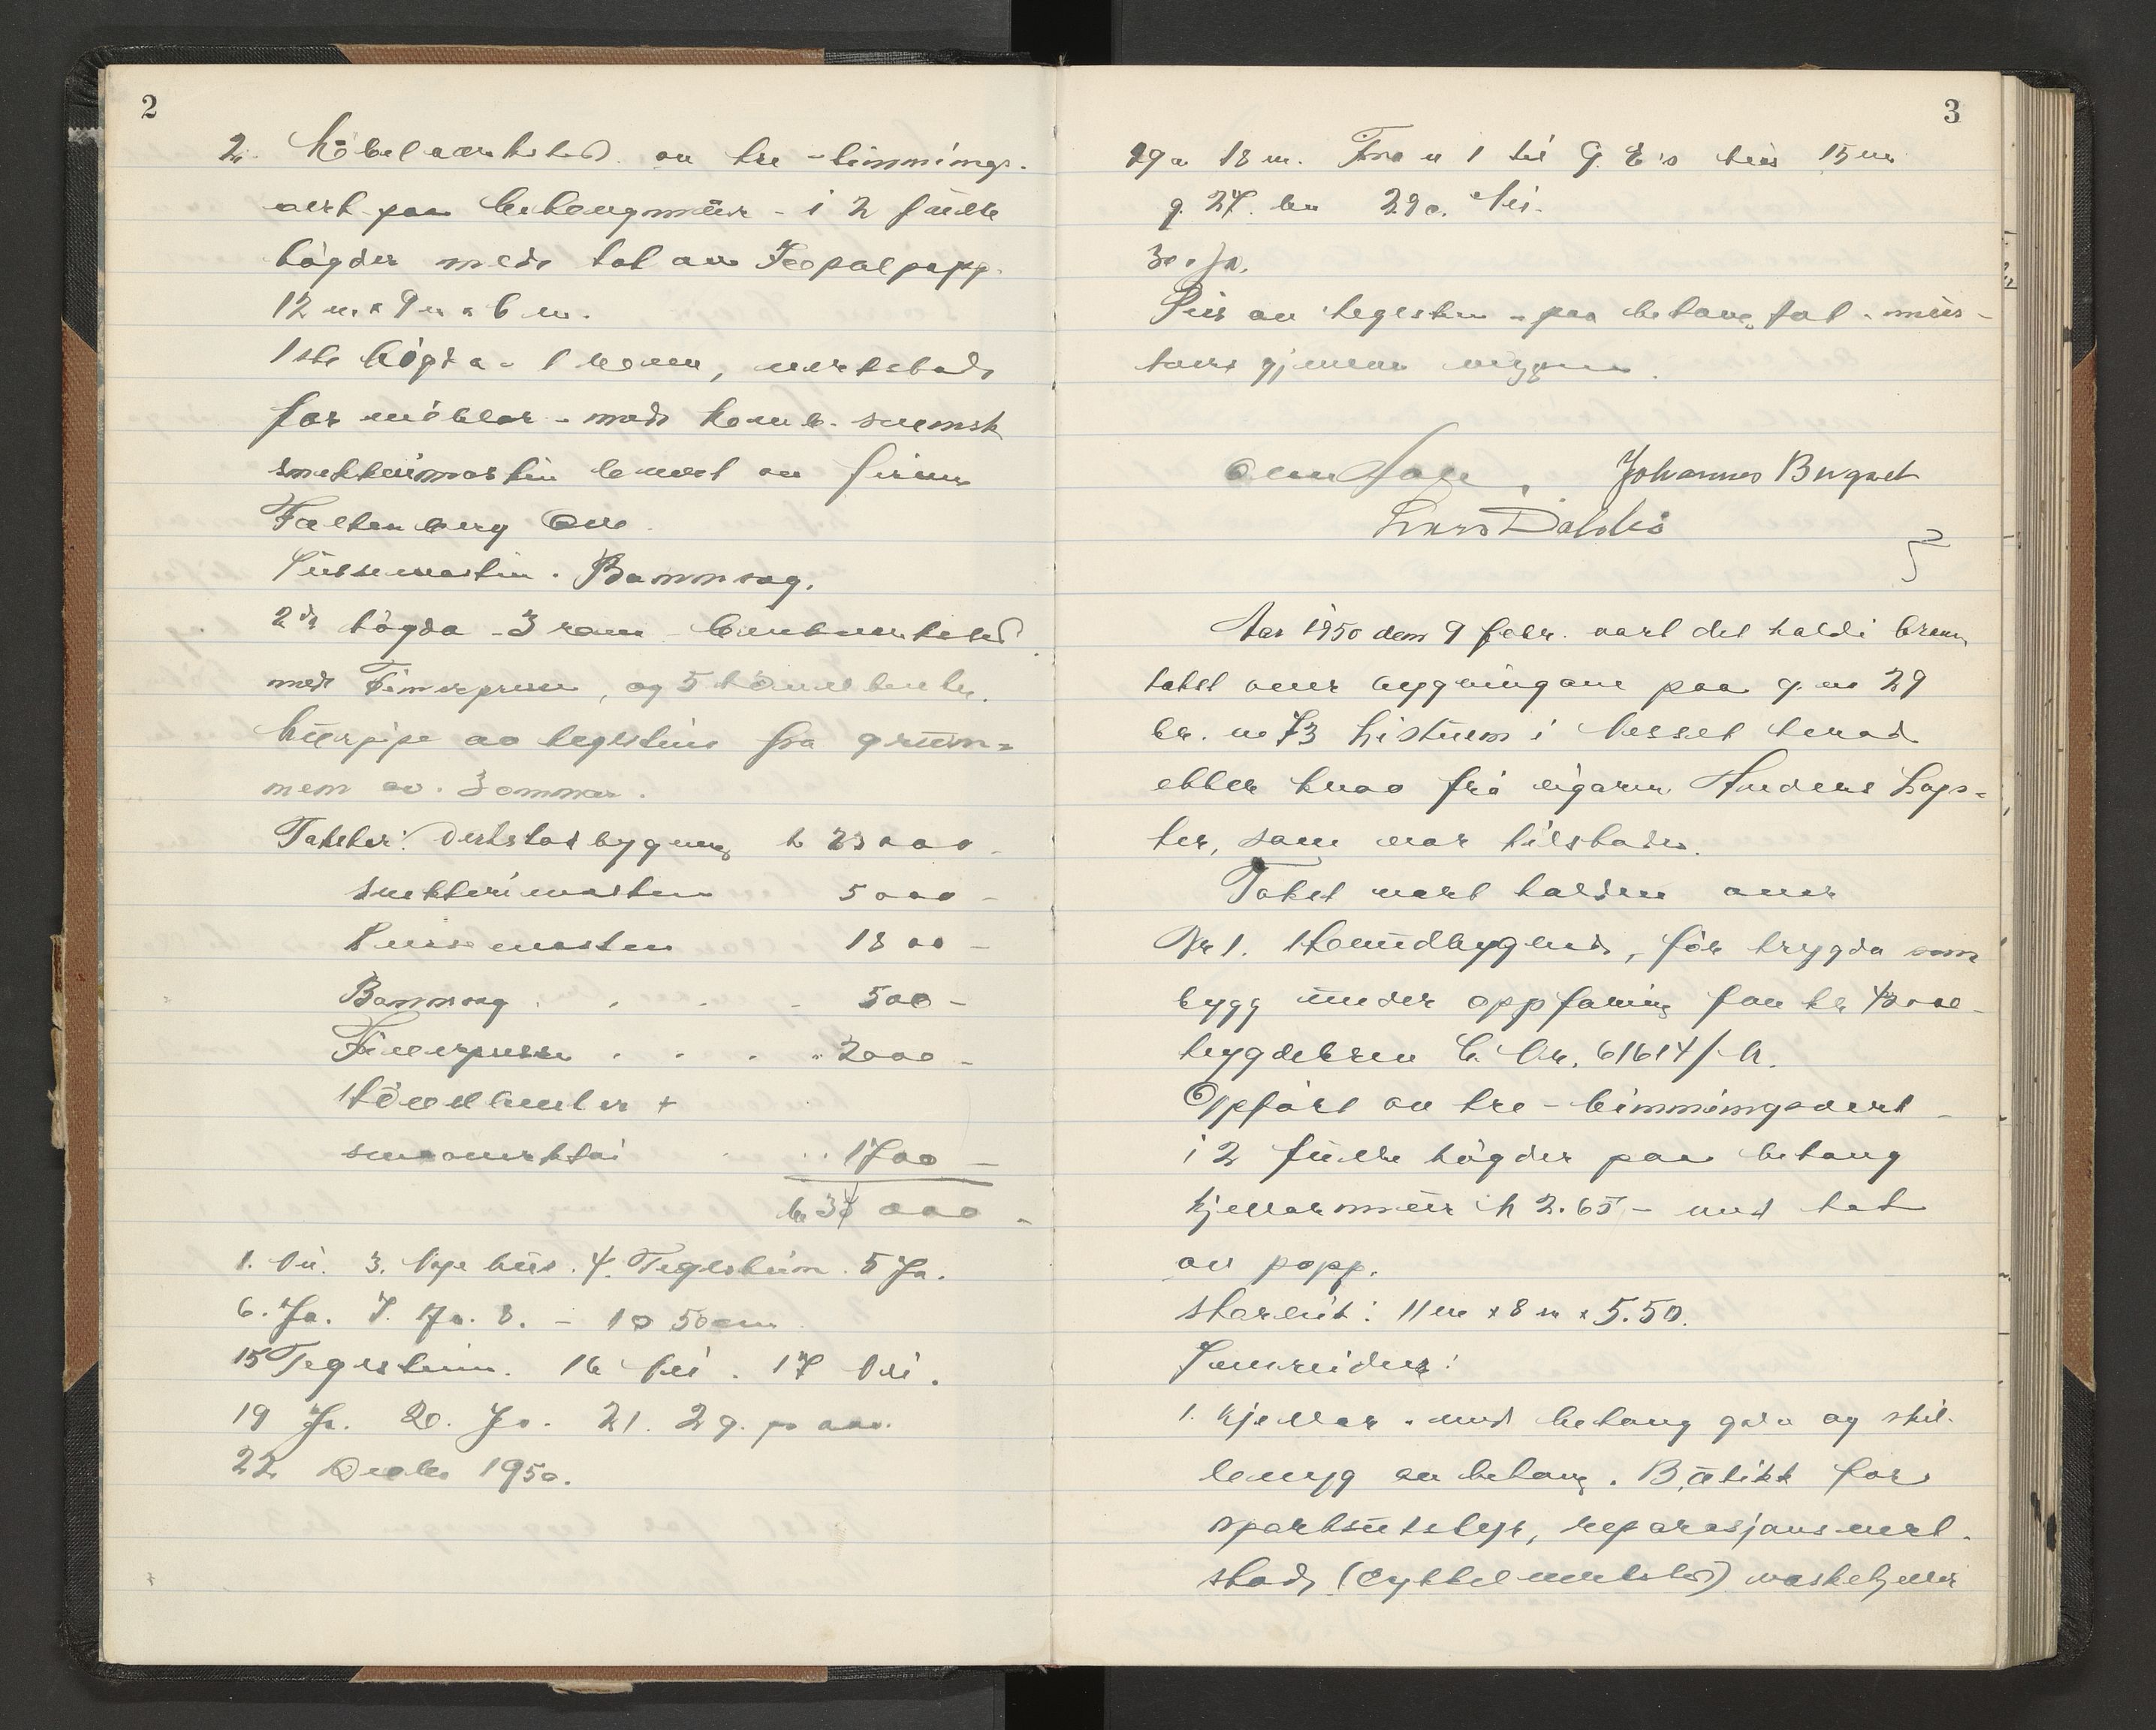 2
2. Möbelverkstad av tre-bimmings-
verk paa betongmür - i 2 fülle
högder med tak av Teopalpapp.
12 m. x 9 m x 6 m.
1ste högda - 1 rom, verkstad
for möblar - med komb. svensk
snekkerimaskin levert av firma
Falkenberg
Püssemaskin. Bannsag.
2dr högda - 3 rom
med Finerpresse, og 5 hövelbenker.
Mürpipe av teglstein fra grün-
nen av. 3 ommar.
Takster: Verkstadbygning kr 23000 -
Snekkerimaskin 5000 -
Pussemaskin 1800 -
Bannsag . . . . 500 -
Finerpresse . . . . 2000 -
Hövelbenker +
smaaverktöi . . 1700 -
kr 34 000 -
1. Nei. 3. Nye hüs. 4. Teglstein. 5 Ja.
6. Ja. 7. Ja. 8. - 10 50 cm
15 Teglstein. 16 Nei. 17 Nei.
19 Ja. 20. Ja. 21. 29.
22 1950.
3
29 a 18 m. Fra n 1 til G. E's hüs 15 m
g. 27. br 29 c. Nei.
30. Ja.
Pipe av teglstein - paa betong
gjennom
Johannes Bugset
Lars
Aar 1950 den 9 febr. vart det haldi brann
takst over bygningane paa g. no 29
br. no 73 Listuen i Vesset herad
etter krav frå eigaren Anders
ter, som var tilstades.
Takst vart halden over
Nr 1. Hovudbygnad, för trygda som
bygg ünder oppföring for kr 42000 -
trygdebrev C. Nr. 61614/
Oppfört av tre - bimmingsverk -
i 2 fülle högder paa betong
kjellarmür h 2.65 - med tak
av papp.
Storleik: 11 m x 8 m x 5.50.
Innreiding:
1. Kjellar - med betong golv og skil-
levegg av betong. Bütikk for
sportsütstyr, reparasjonsverk-
stad (Cykkelverkstad) vaskekjeller